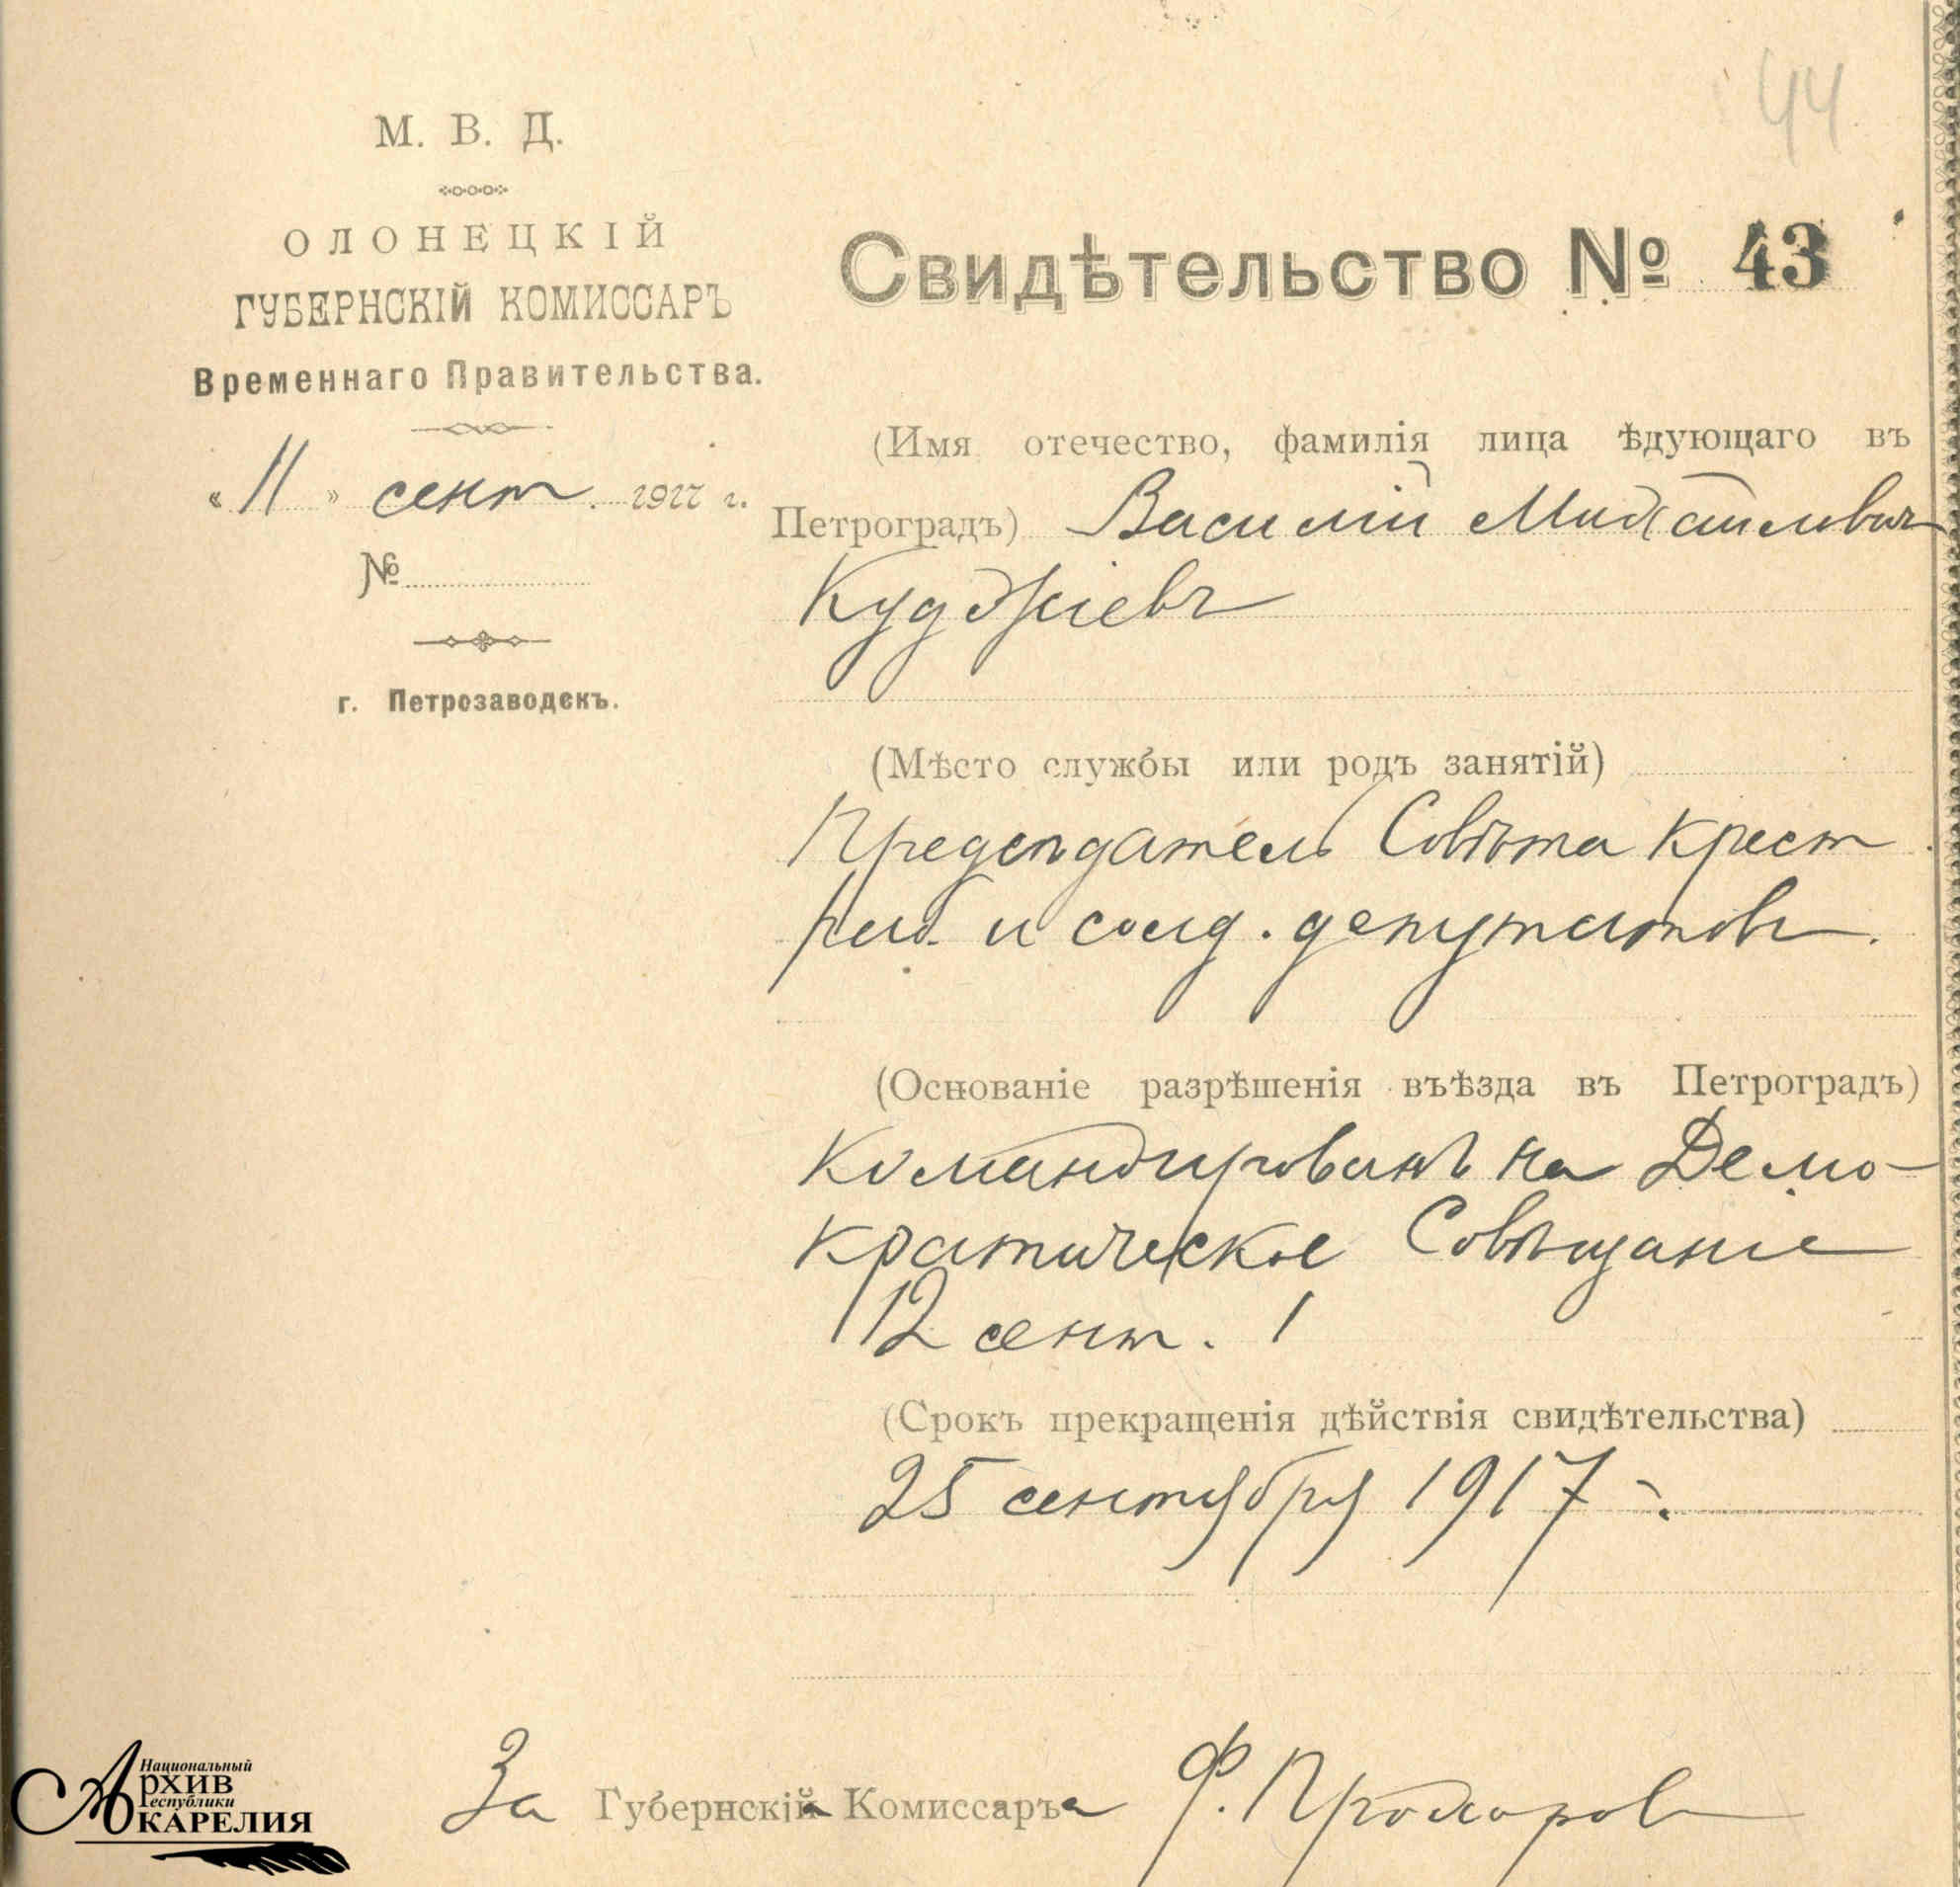 44
М. В. Д.
ОЛОНЕЦКІЙ
ГУБЕРНСКІЙ КОМИССАРЪ
Временнаго Правительства.
« 11 » сент. 1917 г.
№
г. Петрозаводскъ.
Свидѣтельство № 43
(Имя отечество, фамилія лица ѣдующаго въ
Петроградъ) Василій Михайлович
Куджіевъ
(Мѣсто службы или родъ занятій)
Предсѣдатель Совѣта Крест
раб. и солд. депутатовъ.
(Основаніе разрѣшенія въѣзда въ Петроградъ)
Командированъ на Демо-
кратическое Совѣщаніе
12 сент.
(Срокъ прекращенія дѣйствія свидѣтельства)
25 сентября 1917 г.
За Губернскійа Комиссаръа Ф. Прохоров
Национальный
Архив
Республики
Карелия